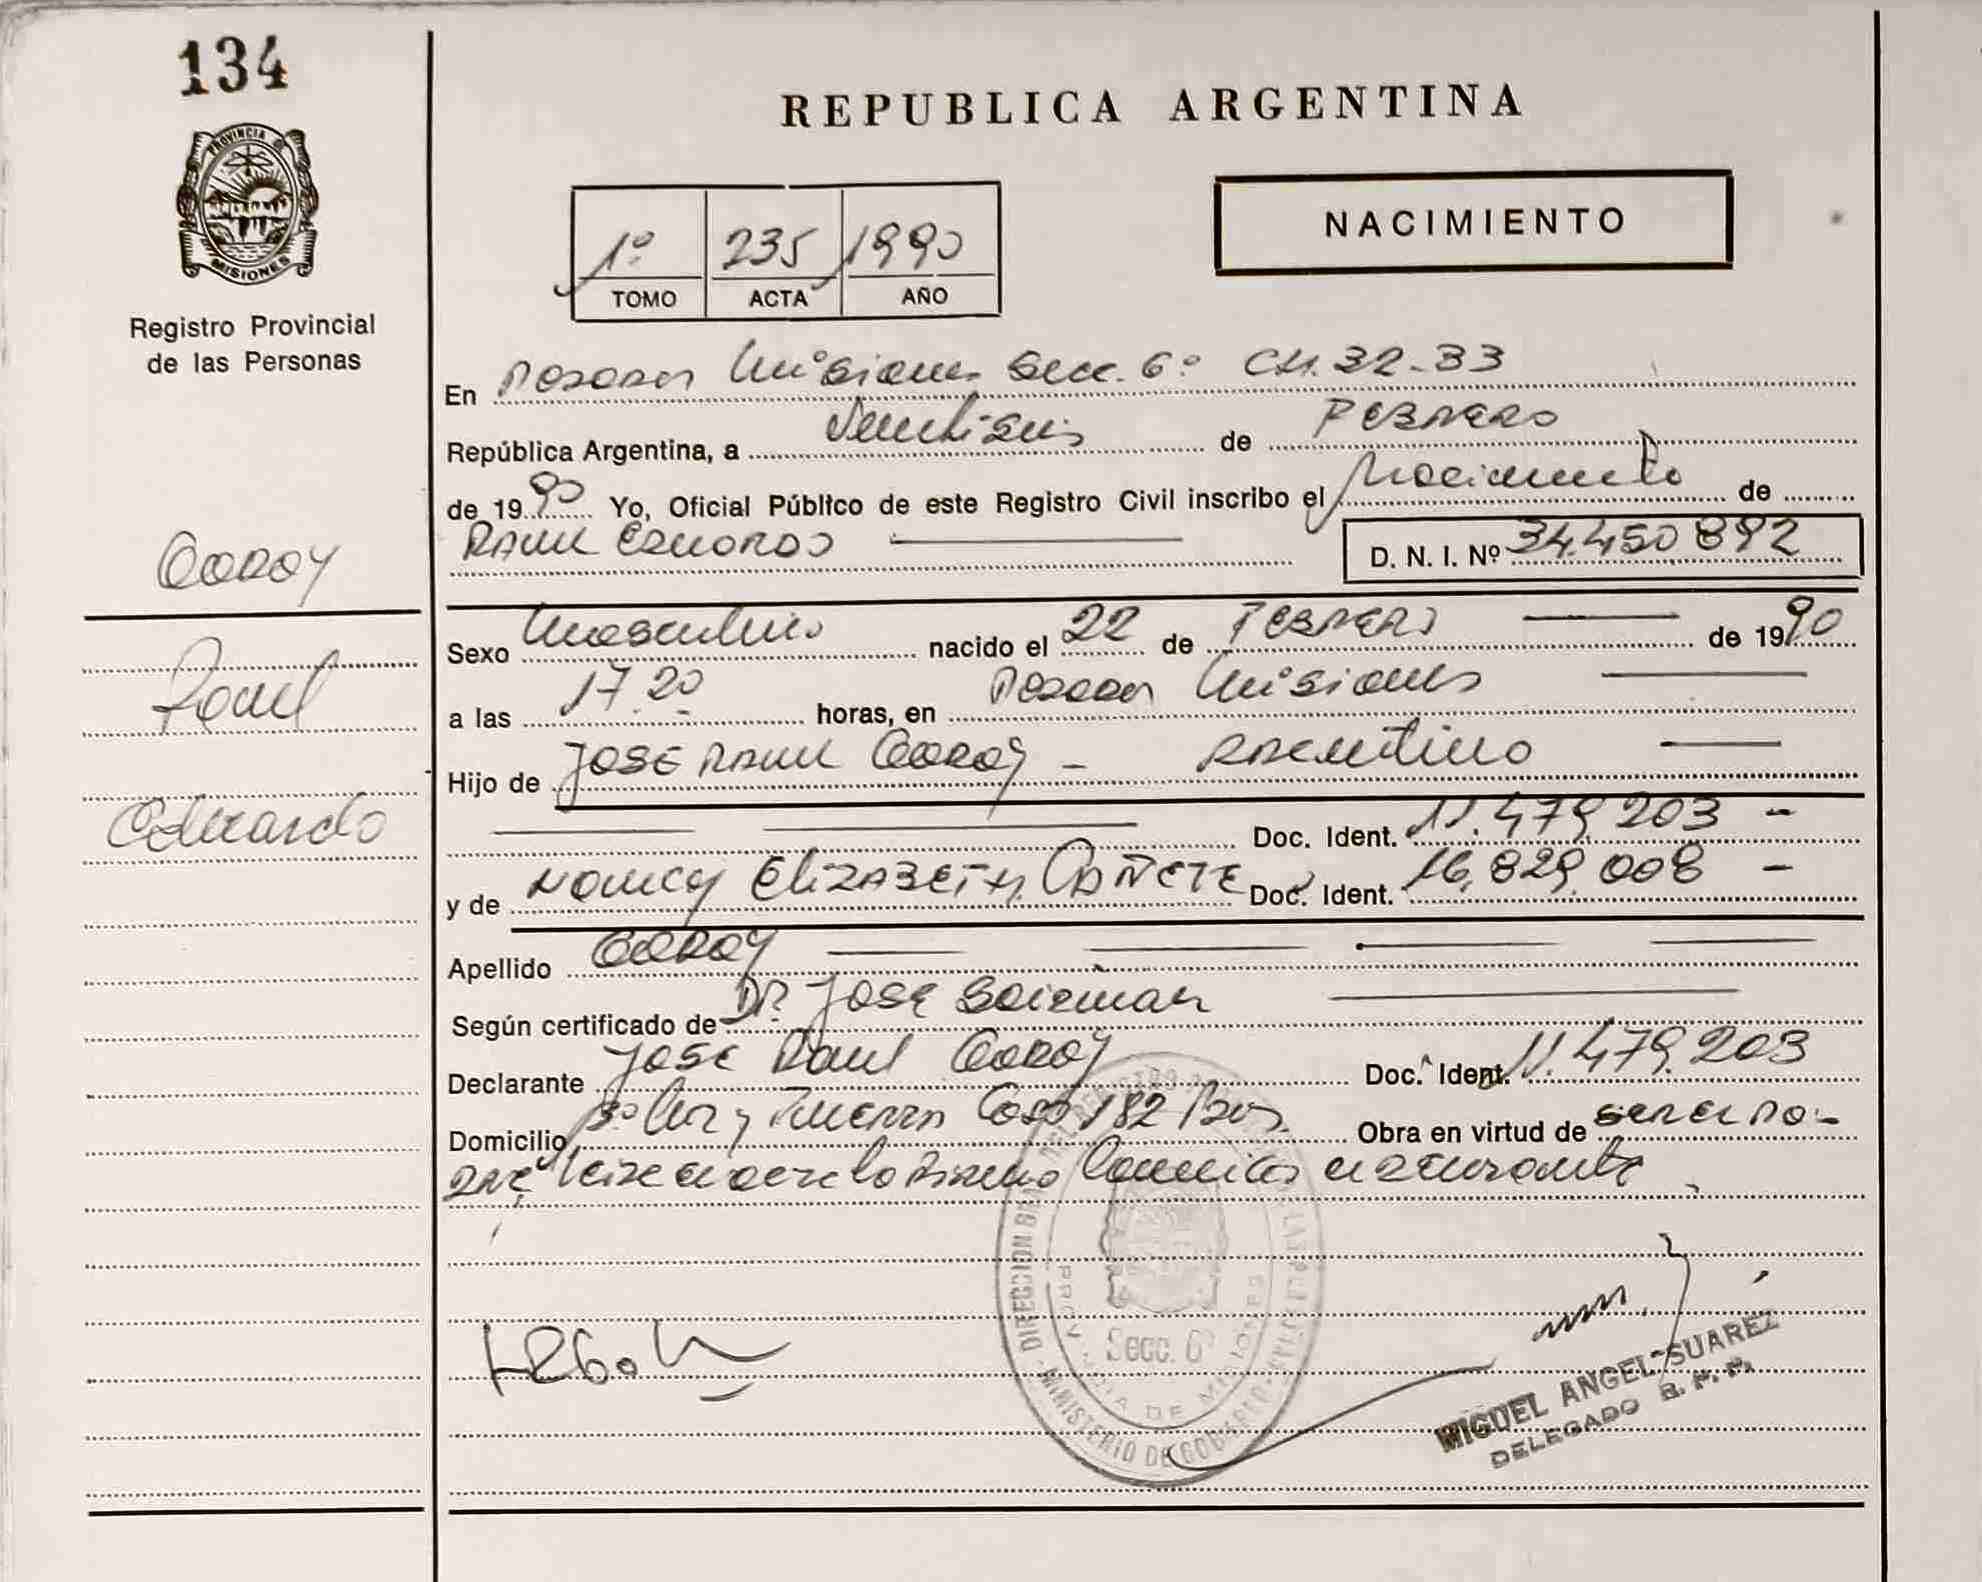 134
PROVINCIA DE
MISIONES
Registro Provincial
de las Personas
REPUBLICA ARGENTINA
NACIMIENTO
1º 235 1990
TOMO ACTA AÑO
En Posadas Misiones Secc. 6º CH. 32-33
República Argentina, a Veintiseis de FEBRERO
de 1990 Yo, Oficial Público de este Registro Civil inscribo el Nacimiento de
RAUL EDUARDO D. N. I. Nº 34.450892
GODOY
Raul
Eduardo
Sexo Masculino nacido el 22 de FEBRERO de 1990
a las 17.20 horas, en Posadas Misiones
Hijo de JOSE RAUL GODOY - ARGENTINO
Doc. Ident. 11.479.203 -
y de NANCY ELIZABETH CAÑETE Doc. Ident. 16.829.008 -
Apellido GODOY
Según certificado de DR. JOSE
Declarante JOSE RAUL GODOY Doc. Ident. 11.479.203
Domicilio Casa 182 Obra en virtud de
DIRECCION
MINISTERIO DE GOBIERNO
PROVINCIA DE MISIONES
Secc. 6º
MIGUEL ANGEL SUAREZ
DELEGADO R. P. P.